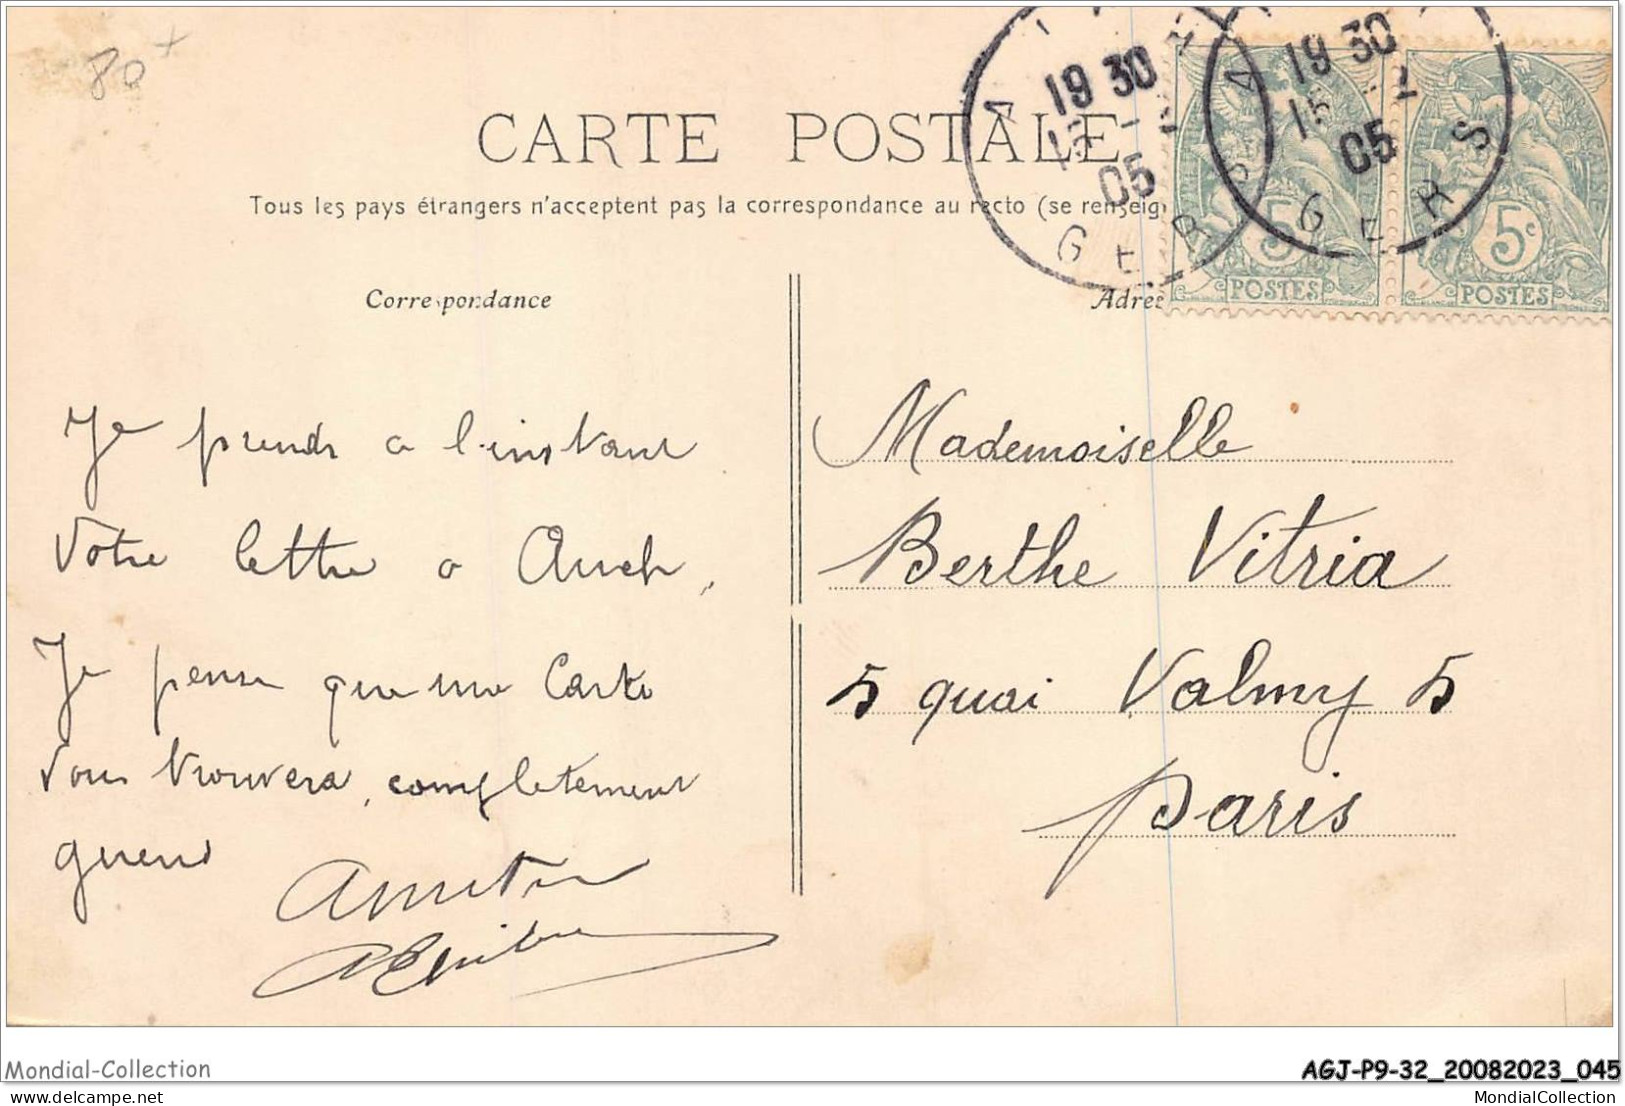 80 x
CARTE POSTALE
Tous les pays étrangers n'acceptent pas la correspondance au recto (se renseig
Correspondance
Adres
19 30
15 - 2
05
GERS
19 30
15 - 2
05
GERS
5c
POSTES
5c
POSTES
Je prends a l'instant
Votre lettre a Auch,
Je pense que ma Carte
Vous trouvera, completement
Mademoiselle
Berthe Vitria
5 quai Valmy 5
Paris
Mondial-Collection
AGJ-P9-32_20082023_045
delcampe.net
MondialCollection